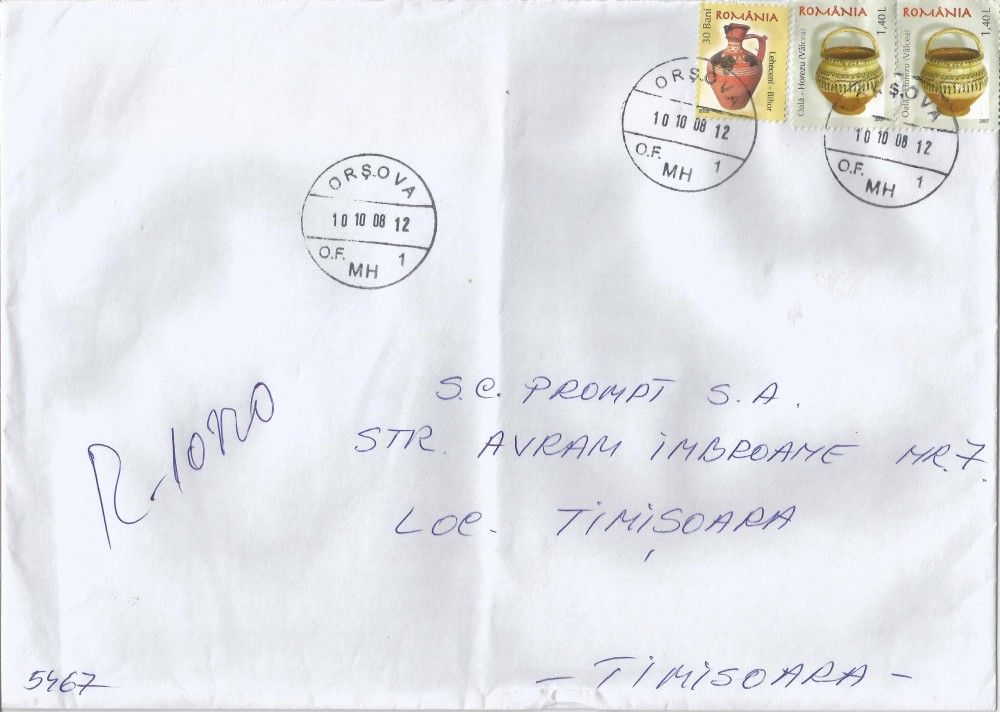 30 Bani
ROMÂNIA
Leheceni - Bihor
ROMÂNIA
1,40 L
Oală - Horezu (Vâlcea)
2007
ROMÂNIA
1,40 L
Oală - Horezu (Vâlcea)
2007
ORŞOVA
10 10 08 12
O.F. 1
MH
ORŞOVA
10 10 08 12
O.F. 1
MH
ORŞOVA
10 10 08 12
O.F. 1
MH
S.C. PROMPT S.A.
STR. AVRAM IMBROANE NR.7
LOC. TIMIŞOARA
- TIMISOARA -
5467